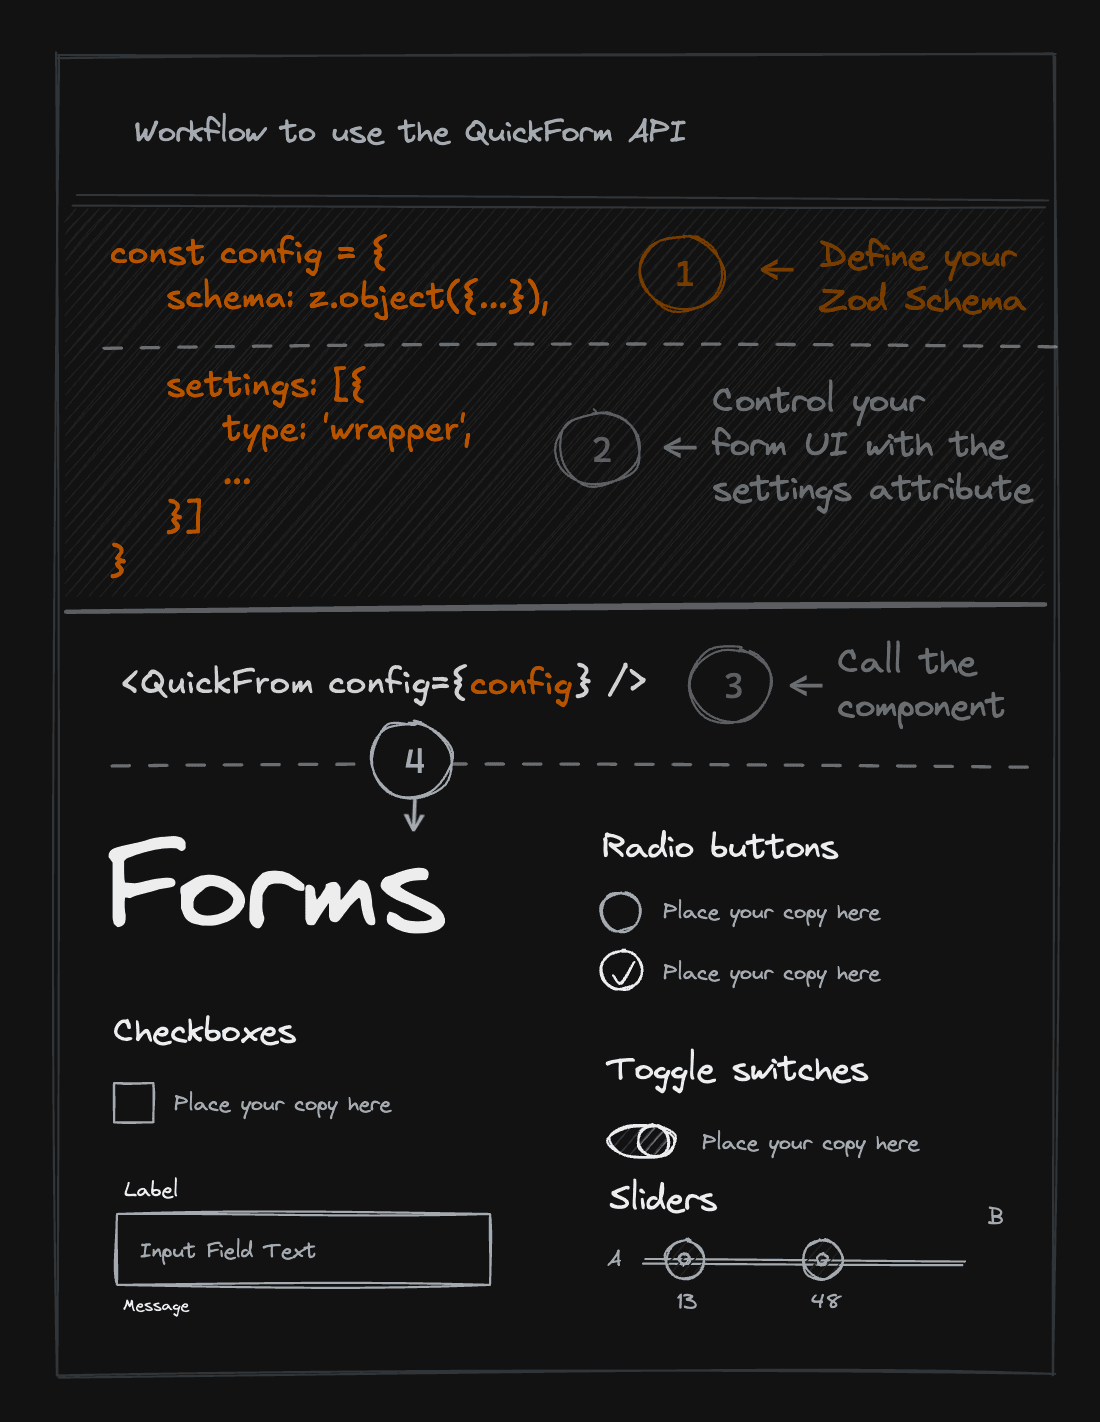 Workflow to use the QuickForm API
const config = {
schema: z.object({...}),
1
← Define your
Zod Schema
settings: [{
type: 'wrapper',
...
}]
}
2
← Control your
form UI with the
settings attribute
<QuickFrom config={config} />
3
← Call the
component
4
Forms
Radio buttons
Place your copy here
Place your copy here
Checkboxes
Place your copy here
Toggle switches
Place your copy here
Label
Input Field Text
Message
Sliders
B
A
13
48